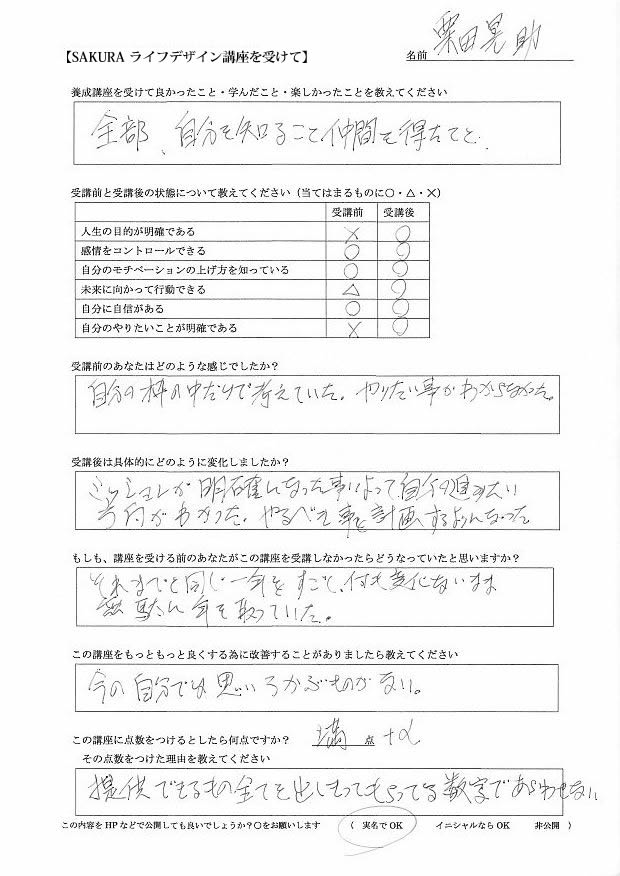 【SAKURA ライフデザイン講座を受けて】
名前 栗田晃助
養成講座を受けて良かったこと・学んだこと・楽しかったことを教えてください
全部、自分を知ること仲間を得たこと
受講前と受講後の状態について教えてください（当てはまるものに○・△・×）
受講前 受講後
人生の目的が明確である × ○
感情をコントロールできる ○ ○
自分のモチベーションの上げ方を知っている ○ ○
未来に向かって行動できる △ ○
自分に自信がある ○ ○
自分のやりたいことが明確である × ○
受講前のあなたはどのような感じでしたか？
自分の枠の中だけで考えていた。やりたい事がわからなかった。
受講後は具体的にどのように変化しましたか？
ミッションが明確になった事によって自分の進みたい
方向がわかった。やるべき事を計画するようになった
もしも、講座を受ける前のあなたがこの講座を受講しなかったらどうなっていたと思いますか？
それまでと同じ一年をすごし、何も変化ないまま
無駄に年を取っていた。
この講座をもっともっと良くする為に改善することがありましたら教えてください
今の自分では思いうかぶものがない。
この講座に点数をつけるとしたら何点ですか？ 満 点 +α
その点数をつけた理由を教えてください
提供できるもの全てを出しもってもらってる数字であらわせない
この内容をHPなどで公開しても良いでしょうか？○をお願いします （ 実名でOK イニシャルならOK 非公開 ）